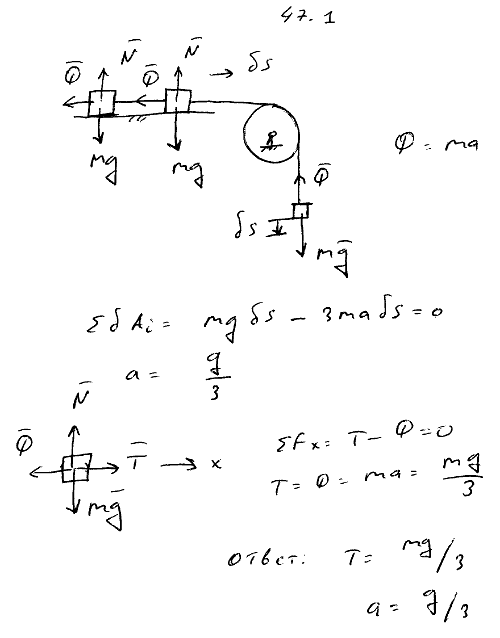 47.1
N̄ N̄
Φ̄ Φ̄ → δs
mg mg
Φ = ma
Φ̄
δs
mḡ
Σδ Ai = mg δs − 3ma δs = 0
a = g/3
N̄
Φ̄ T̄ → x
mḡ
ΣFx = T − Φ = 0
T = Φ = ma = mg/3
Ответ: T = mg/3
a = g/3